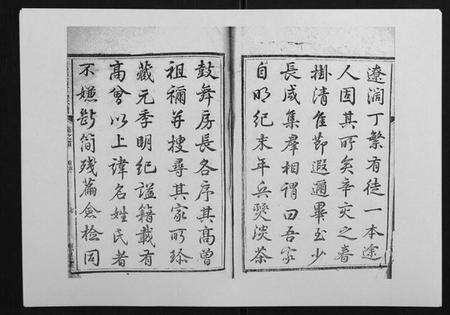 遼濶丁繁有徒一本途
人固其所矣辛亥之春
掛清隹節遐邇畢至少
長咸集羣相謂曰吾家
自明紀末年兵燹淡茶
鼓舞房長各序其高曾
祖禰并搜尋其家所珎
藏元季明紀謚籍載有
高曾以上諱名姓氏者
不嫌斷简殘篇僉检同